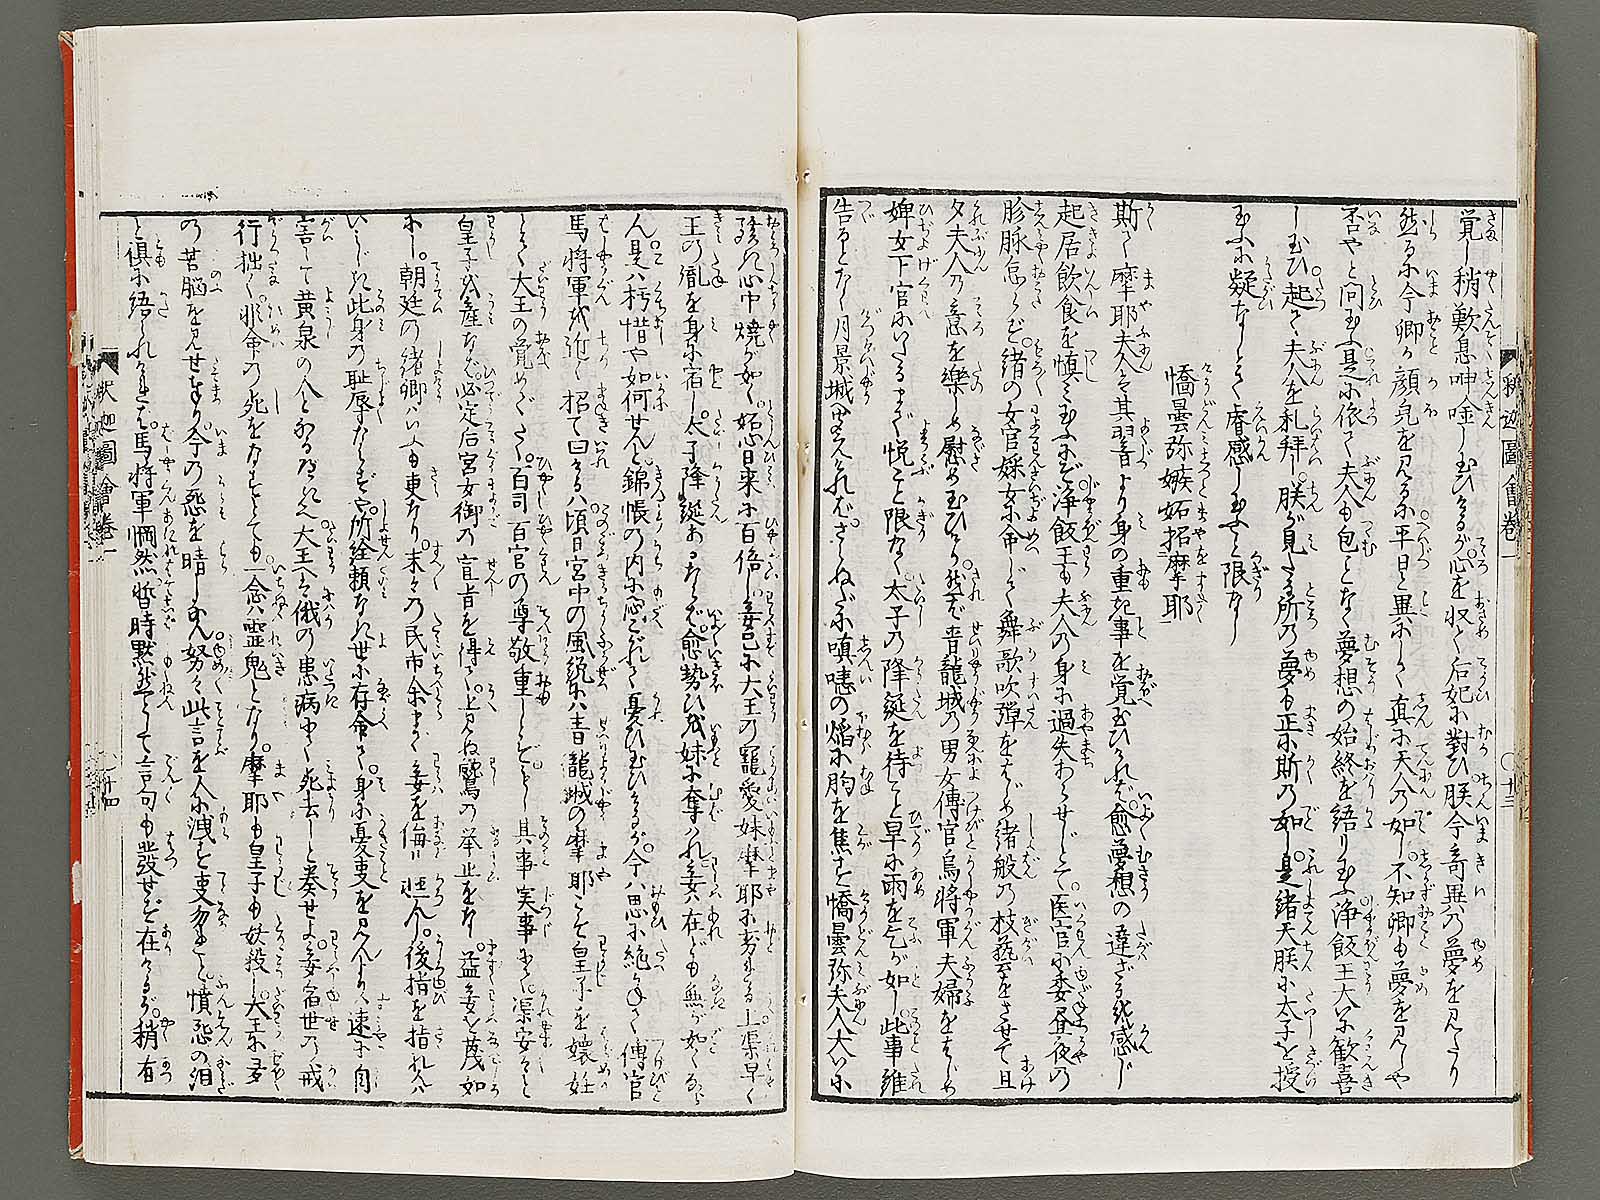 覚し稍歎息呻吟し玉ひけるが心を収て后妃に對ひ朕今奇異の夢を見たり
然るに今卿が顔皃を見るに平日と異にして真に天人の如し不知卿も夢を見しや
否やと問玉ふ是に依て夫人も包ことなく夢想の始終を語り玉ふ浄飯王大に歓喜
し玉ひ起て夫人を礼拝し朕が見たる所の夢も正に斯の如し是諸天朕に太子を授
玉ふに疑なしとて睿感し玉ふこと限なし
憍曇弥嫉妬招摩耶
斯て摩耶夫人は其翌日より身の重き事を覚玉ひければ愈夢想の違ざるを感じ
起居飲食を慎み玉ふにぞ浄飯王も夫人の身に過失あらせじとて医官に委昼夜の
胗脉怠らず諸の女官婇女に命じて舞歌吹弾をはじめ諸般の枝藝をさせて且
夕夫人の意を樂しめ慰め玉ひけり然ば青龍城の男女傅官烏将軍夫婦をはじめ
婢女下官にいたるまで悦こと限なく太子の降誕を待こと早に雨を乞が如し此事誰
告るとなく月景城に聞えければさらぬだに嗔恚の焔に胸を焦す憍曇弥夫人大いに
心中焼が如く妬心日来に百倍し妾已に大王の寵愛妹摩耶に劣れる上渠早く
王の胤を身に宿し太子降誕あるならば愈勢ひを妹に奪はれ妾は在ども無が如くなら
ん是は朽惜や如何せんと錦帳の内に忍こがれて憂ひ玉ひけるが今は思に絶かねて傅官
馬将軍を迎て招て曰けるは頃日宮中の風説には青龍城の摩耶こそ皇子を懐妊
とて大王の覚めでたく百司百官の尊敬重しとぞもし其事実事にて渠安々と
皇子を産なば必定后宮女御の宣旨を得て上見ぬ鷲の挙止をなし益妾を蔑如
にし朝廷の諸卿はいふも更なり末々の民市余まで妾を侮り背後指を指れんは
いかばかり此身の耻辱ならずや所詮頼なき世に存命て身に憂事を見んより速に自
害して黄泉の人となるなれば大王へは俄の患病にて死去しと奏せよ妾宿世の戒
行拙く非命の死をなすとても一念は霊鬼となり摩耶も皇子も妖殺し大王にも
の苦脳を見せ今の怨を晴しなん努々此言を人に洩こと勿れと憤怒の泪
と倶に語られければ馬将軍惘然暫時黙然として言句も發せず在けるが稍有
釈迦圖會巻一
○十三
釈迦圖會巻一
○十四